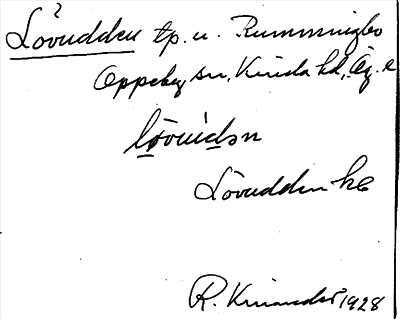 Lövudden tp. u. Rumminglbo
Oppeby sn, Kinda hd, Ög. l
lövùdən
Lövudden hE
R. Kinander 1928